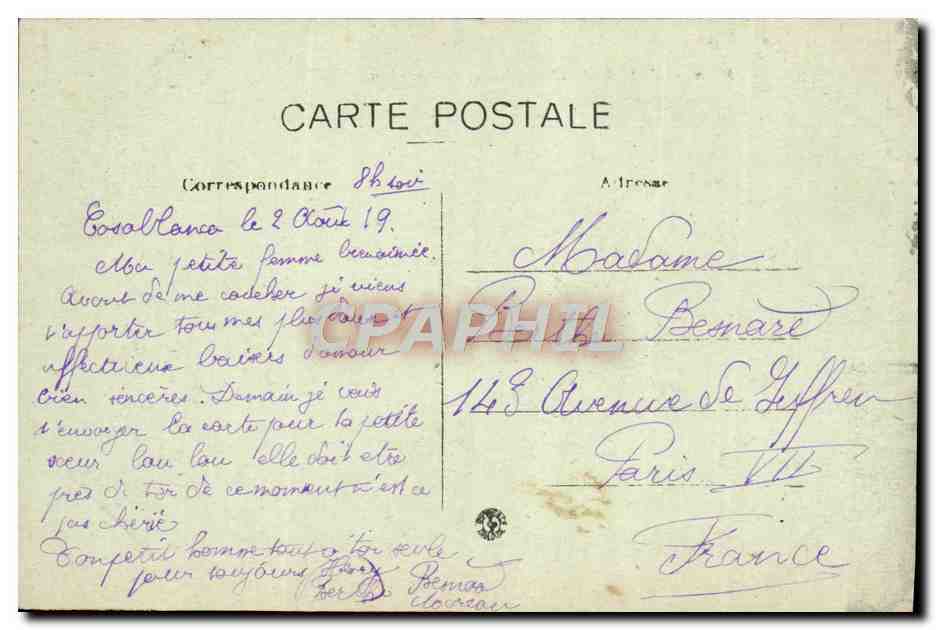 CARTE POSTALE
Correspondance 8h soir
Casablanca le 2 Août 19.
Ma petite femme bienaimée.
Avant de me coucher je viens
t'apporter tous mes plus doux et
affectueux baisers d'amour
bien sincères. Demain je vais
t'envoyer la carte pour ta petite
sœur Lou Lou elle doit etre
pres de toi de ce moment n'est ce
pas chérie
Ton petit homme tout à toi seule
pour toujours
Adresse
Madame
Besnard
143 Avenue de Suffren
Paris VII
France
CPAPHIL